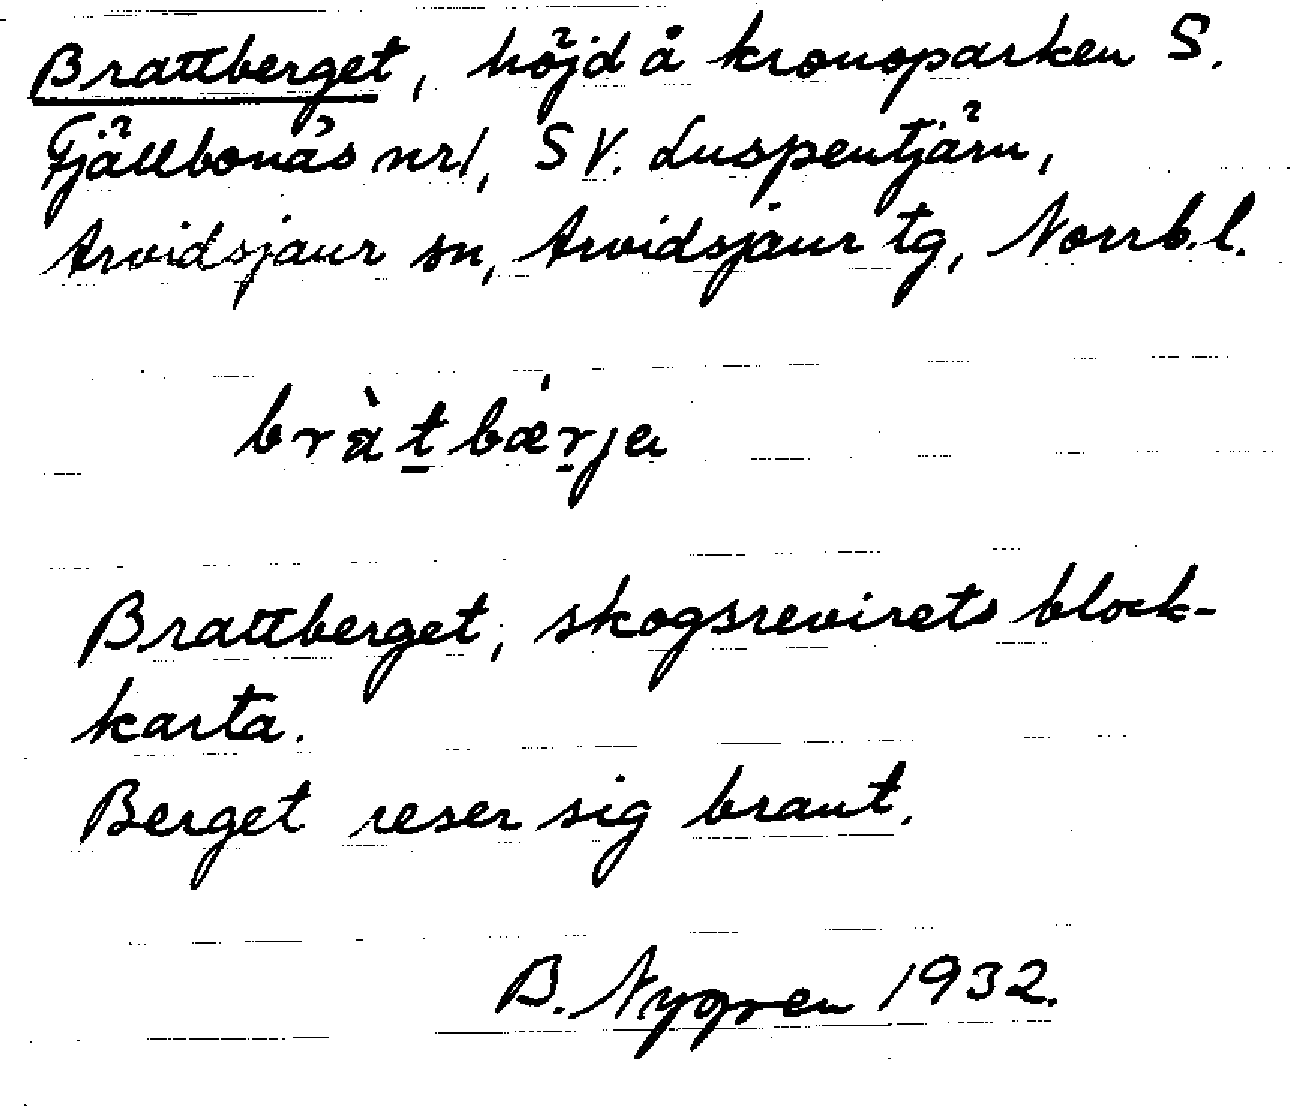 Brattberget, höjd å kronoparken S.
Fjällbonäs nr 1, SV. Luspentjärn,
Arvidsjaur sn, Arvidsjaur tg, Norrb.l.
bràt̲bǽr̲ja
Brattberget, skogsrevirets block-
karta.
Berget reser sig brant.
B. Nygren 1932.